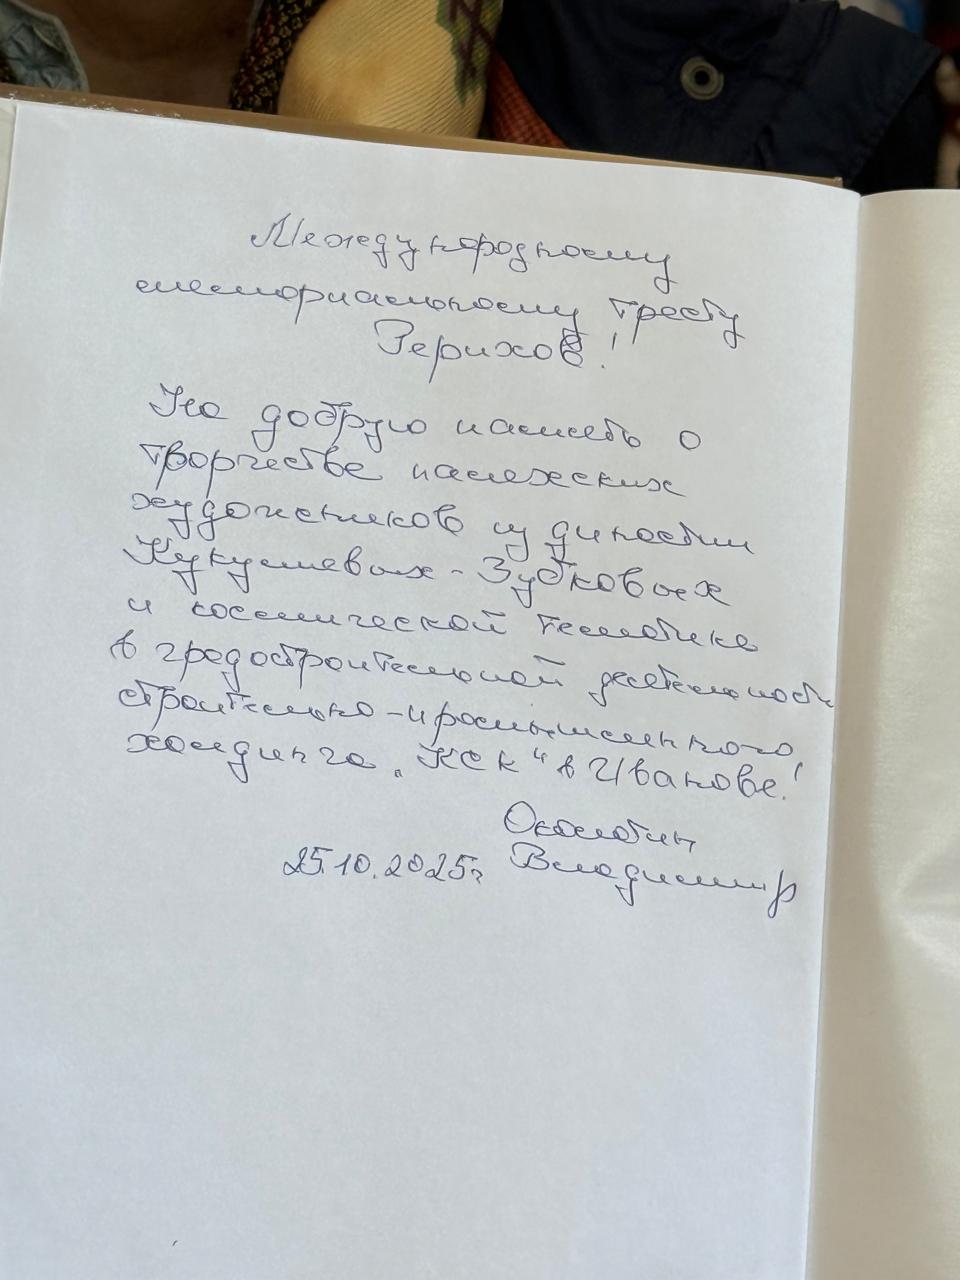 Международному
мемориальному тресту
Рерихов!
На добрую память о
творчестве палехских
художников из династии
Кукулиевых-Зубковых
и космической тематике
в градостроительной деятельности
строительно-промышленного
холдинга „КСК“ в Иванове!
Околотин
25.10.2025г Владимир